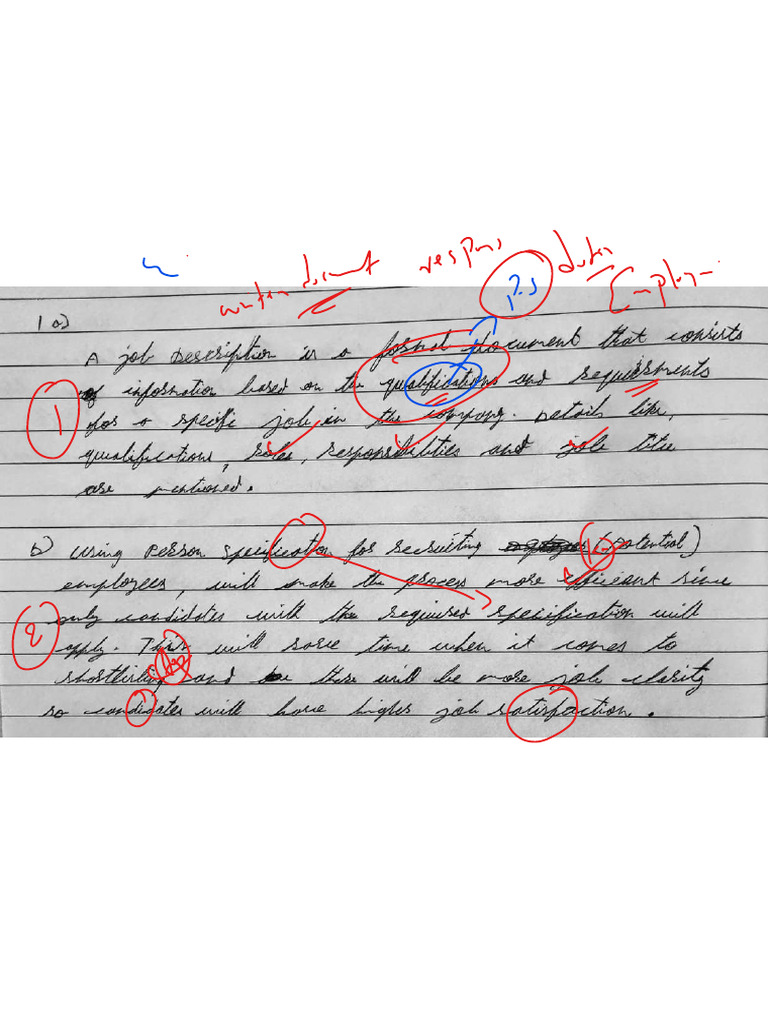 written document respons duties
P.S
1 a)
A job Description is a formal document that consists
of information based on the qualifications and requirements
for a specific job in the company. Details like,
1
qualifications, roles, responsibilities and job title
are mentioned.
b) Using Person specification for recruiting (potential)
employees, will make the process more efficient since
only candidates with the required specification will
2
apply. This will save time when it comes to
shortlisting and there will be more job clarity
so candidates will have higher job satisfaction.